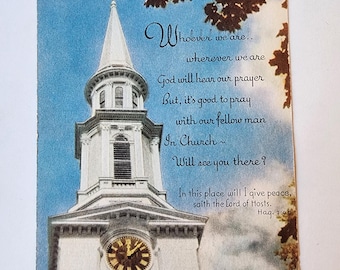 Whoever we are..
wherever we are
God will hear our prayer
But, it's good to pray
with our fellow man
In Church ~
Will see you there?
In this place will I give peace,
saith the Lord of Hosts.
Hag.